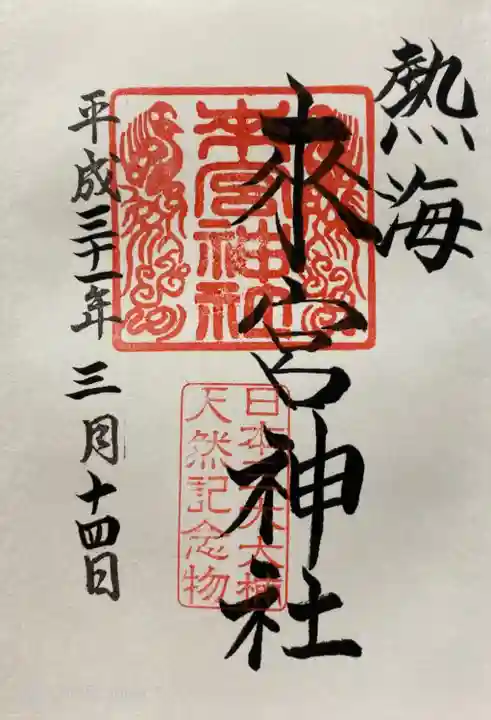 熱海
來宮神社
來宮神社
日本三大大楠
天然記念物
平成三十一年三月十四日